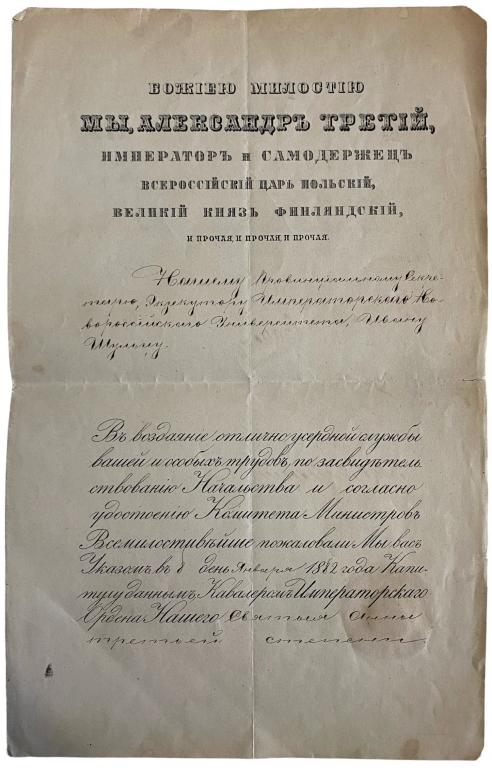 БОЖІЕЮ МИЛОСТІЮ
МЫ, АЛЕКСАНДРЪ ТРЕТІЙ,
ИМПЕРАТОРЪ И САМОДЕРЖЕЦЪ
ВСЕРОССІЙСКІЙ ЦАРЬ ПОЛЬСКІЙ,
ВЕЛИКІЙ КНЯЗЬ ФИНЛЯНДСКІЙ,
И ПРОЧАЯ, И ПРОЧАЯ, И ПРОЧАЯ.
Нашему Провинціальному Секре-
тарю, Экзекутору Императорского Но-
вороссійского Университета, Ивану
Шульцу.
Въ воздаяніе отлично усердной службы
вашей и особыхъ трудовъ, по засвидѣтель
ствованію Начальства и согласно
удостоенію Комитета Министровъ
Всемилостивѣйше пожаловали Мы васъ
Указомъ въ 8 день Января 1882 года Капи-
тулу даннымъ, Кавалеромъ Императорскаго
Ордена Нашего Святыя Анны
третьей степени.